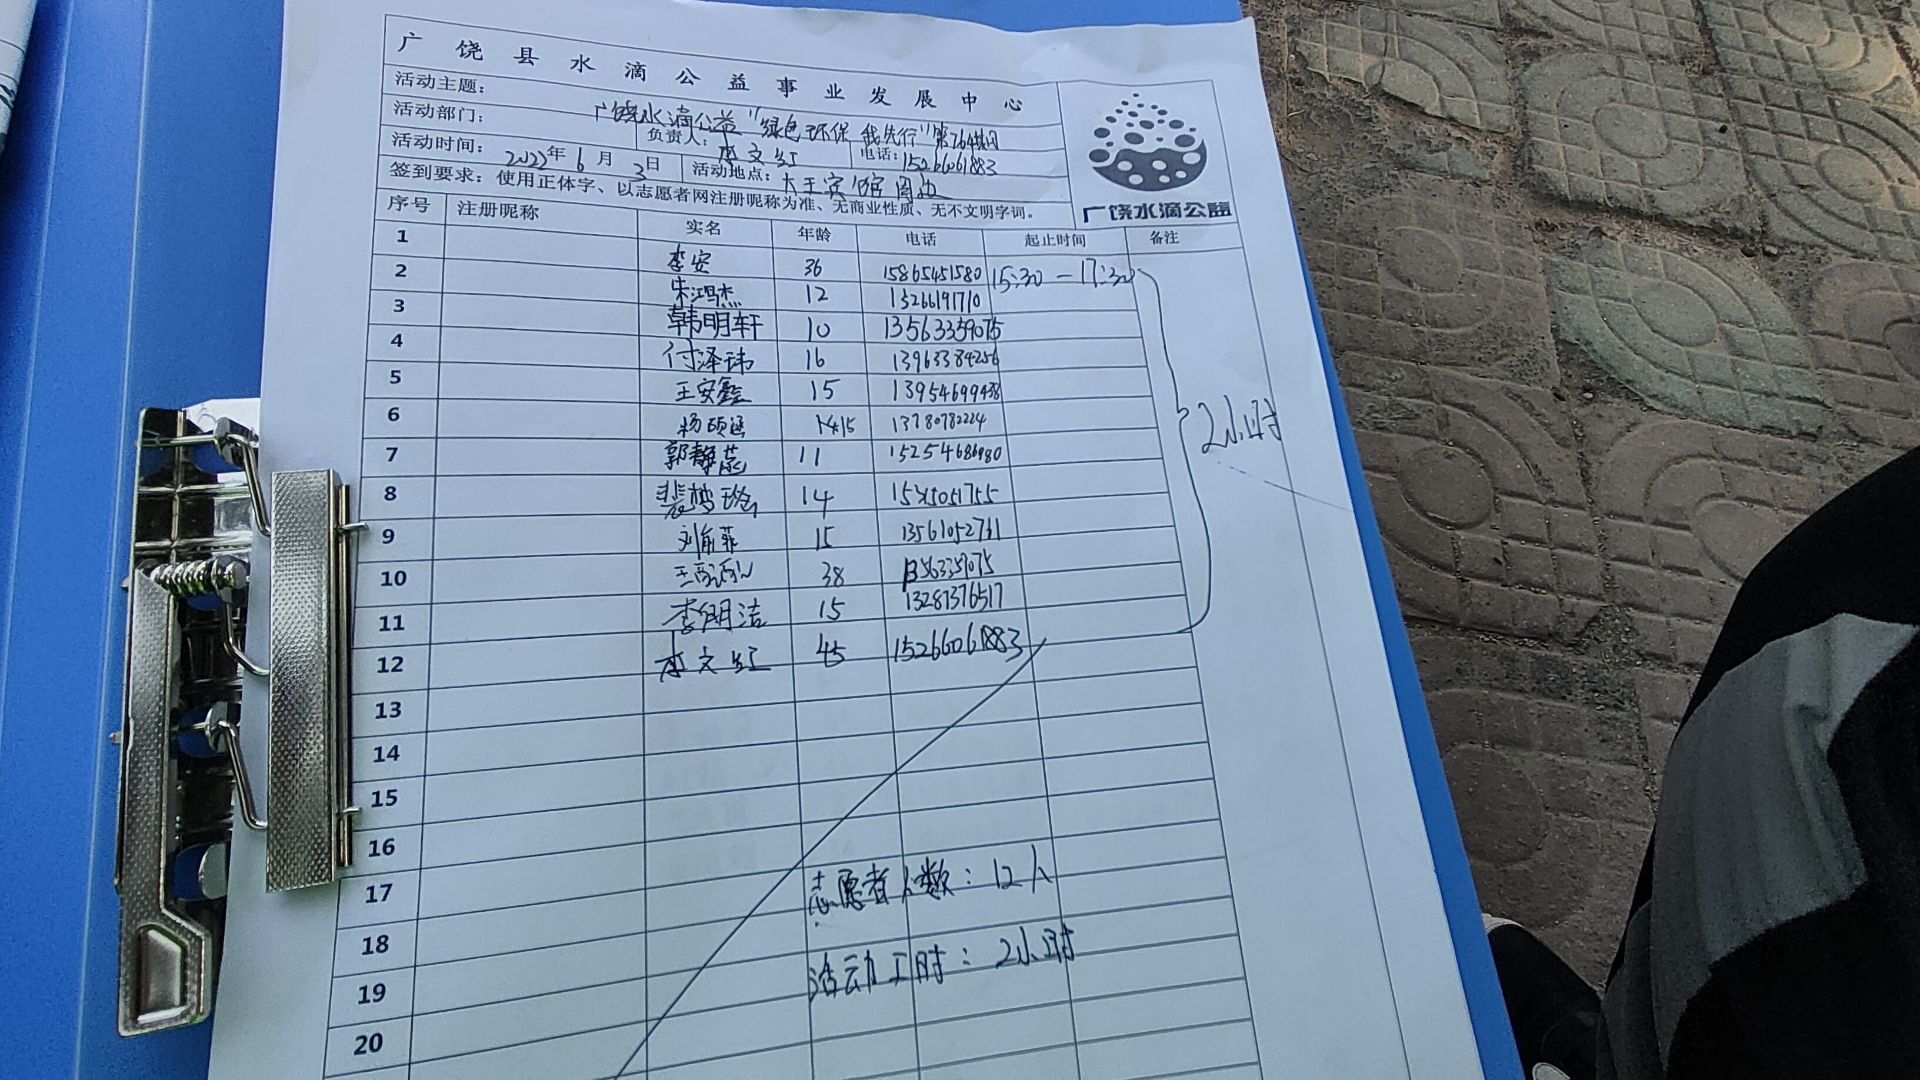 广饶县水滴公益事业发展中心
活动主题： 广饶水滴公益"绿色环保 我先行"第264期
活动部门： 负责人：李文红 电话：15266061883
活动时间： 2022年6月3日 活动地点：大王宾馆周边
签到要求：使用正体字、以志愿者网注册昵称为准、无商业性质、无不文明字词。
广饶水滴公益
序号 注册昵称 实名 年龄 电话 起止时间 备注
1 李安 36 15865451580 15:30—17:30
2 朱鸿杰 12 13266191710
3 韩明轩 10 13563359075
4 付泽玮 16 13963384256
5 王安鑫 15 13954699438
6 杨硕 15 13780782224
7 郭静蕊 11 15254686980
8 裴梦 14
9 刘 菲 15 13561052761
10 王 38 13563359075
11 李明洁 15 13287376517
12 李文红 45 15266061883
2小时
13
14
15
16
17 志愿者人数：12人
18
19 活动工时：2小时
20